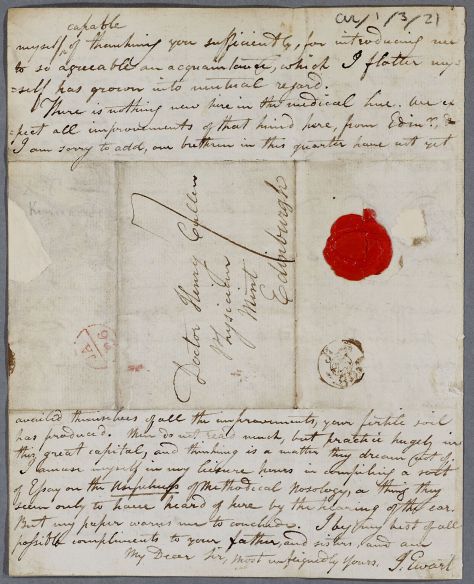 CUL/1/3/21
capable
myself ^ of thanking you sufficiently, for introducing me
to so agreeable an acquaintance, which I flatter my-
=self has grown into mutual regard.
There is nothing new here in the medical line. We ex
=pect all improvements of that kind here, from Edinr., &
I am sorry to add, our brethren in this quarter have not yet
7
Doctor Henry Cullen
Physician
Mint
Edinburgh
availed themselves of all the improvements, your fertile soil
has produced. Men do not read much, but practice hugely in
this great capital, and thinking is a matter they dream not of.
I amuse myself in my leisure hours in compiling a sort
of Essay on the of Methodical Nosology, a thing they
seem only to have heard of here by the hearing of the ear.
But my paper warns me to conclude. I beg my best of all
possible compliments to your father, and sisters, and am
My Dear Sir, most unfeignedly yours. J. Ewart